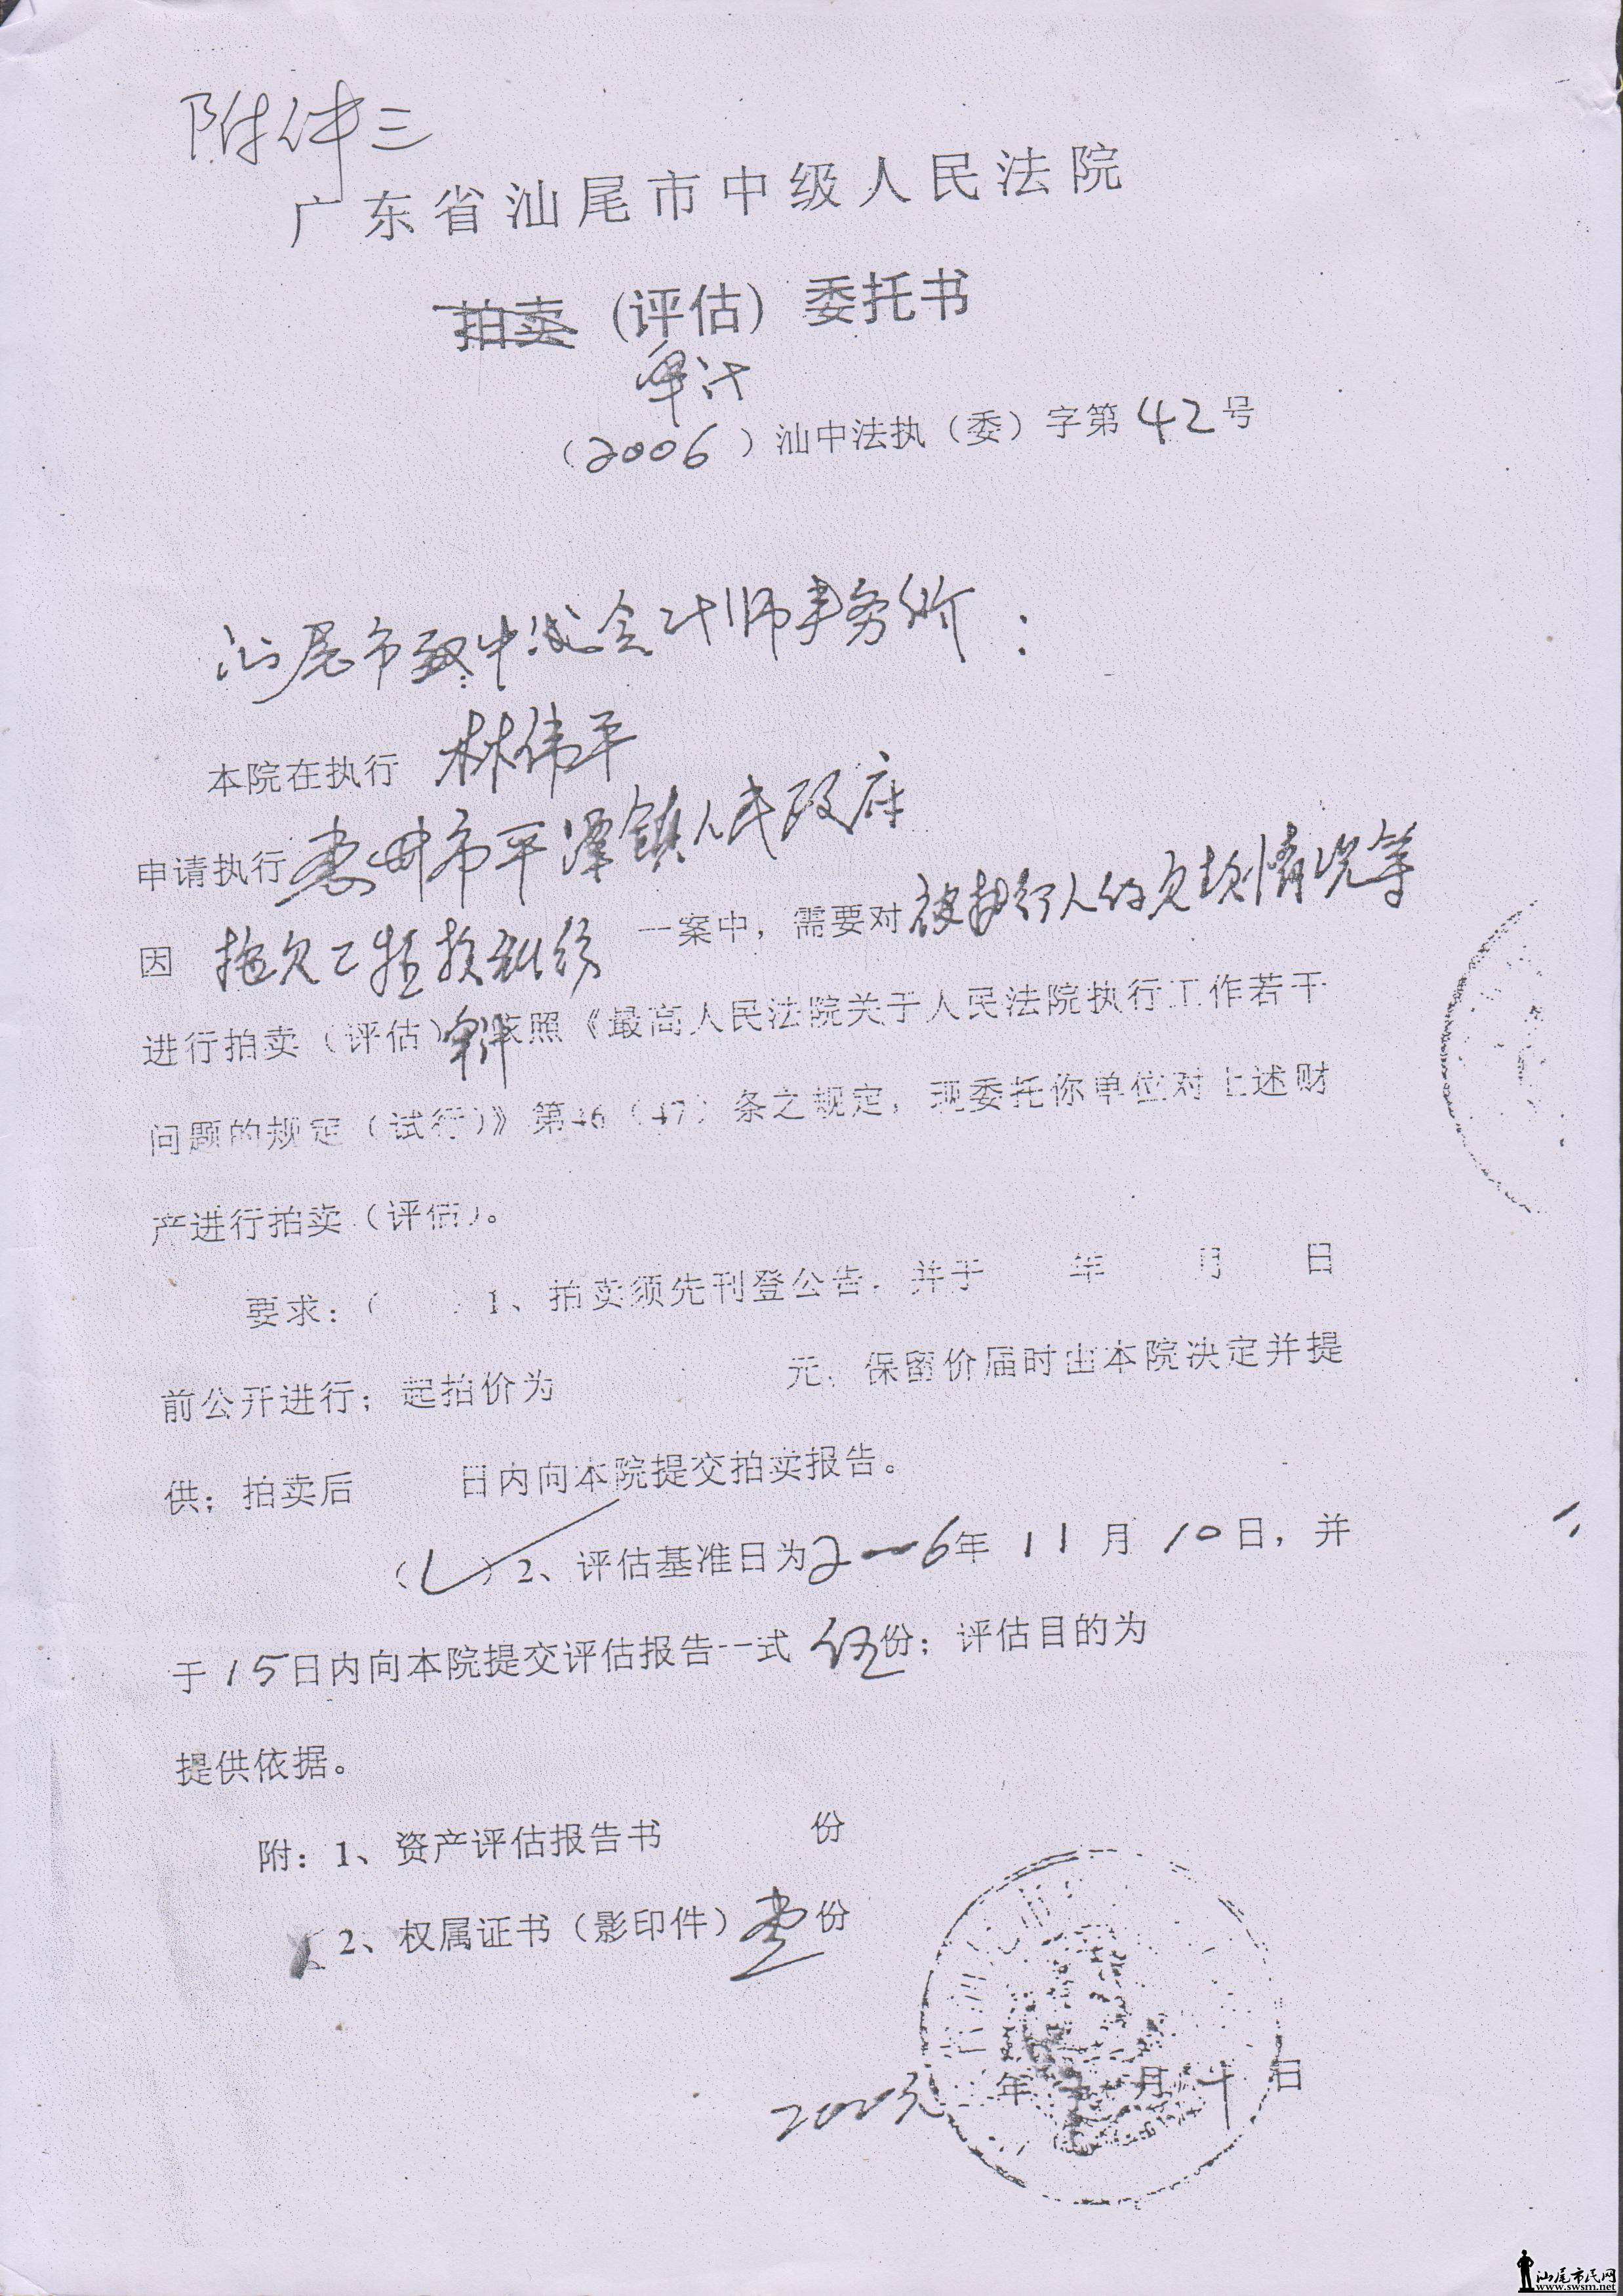 附件三
广东省汕尾市中级人民法院
拍卖（评估）委托书
审计
（2006）汕中法执（委）字第42号
汕尾市致中成会计师事务所：
本院在执行 林伟平
申请执行惠州市平潭镇人民政府
因 拖欠工程款纠纷 一案中，需要对被执行人的欠款情况等
进行拍卖（评估）审计依照《最高人民法院关于人民法院执行工作若干
问题的规定（试行）》第46（47）条之规定，现委托你单位对上述财
产进行拍卖（评估）。
要求：（ ）1、拍卖须先刊登公告，并于 年 月 日
前公开进行；起拍价为 元，保留价届时由本院决定并提
供；拍卖后 日内向本院提交拍卖报告。
（✓）2、评估基准日为2006年11月10日，并
于15日内向本院提交评估报告一式伍份；评估目的为
提供依据。
附：1、资产评估报告书 份
2、权属证书（影印件）壹份
年 月 日
汕尾市民网
www.swsm.net